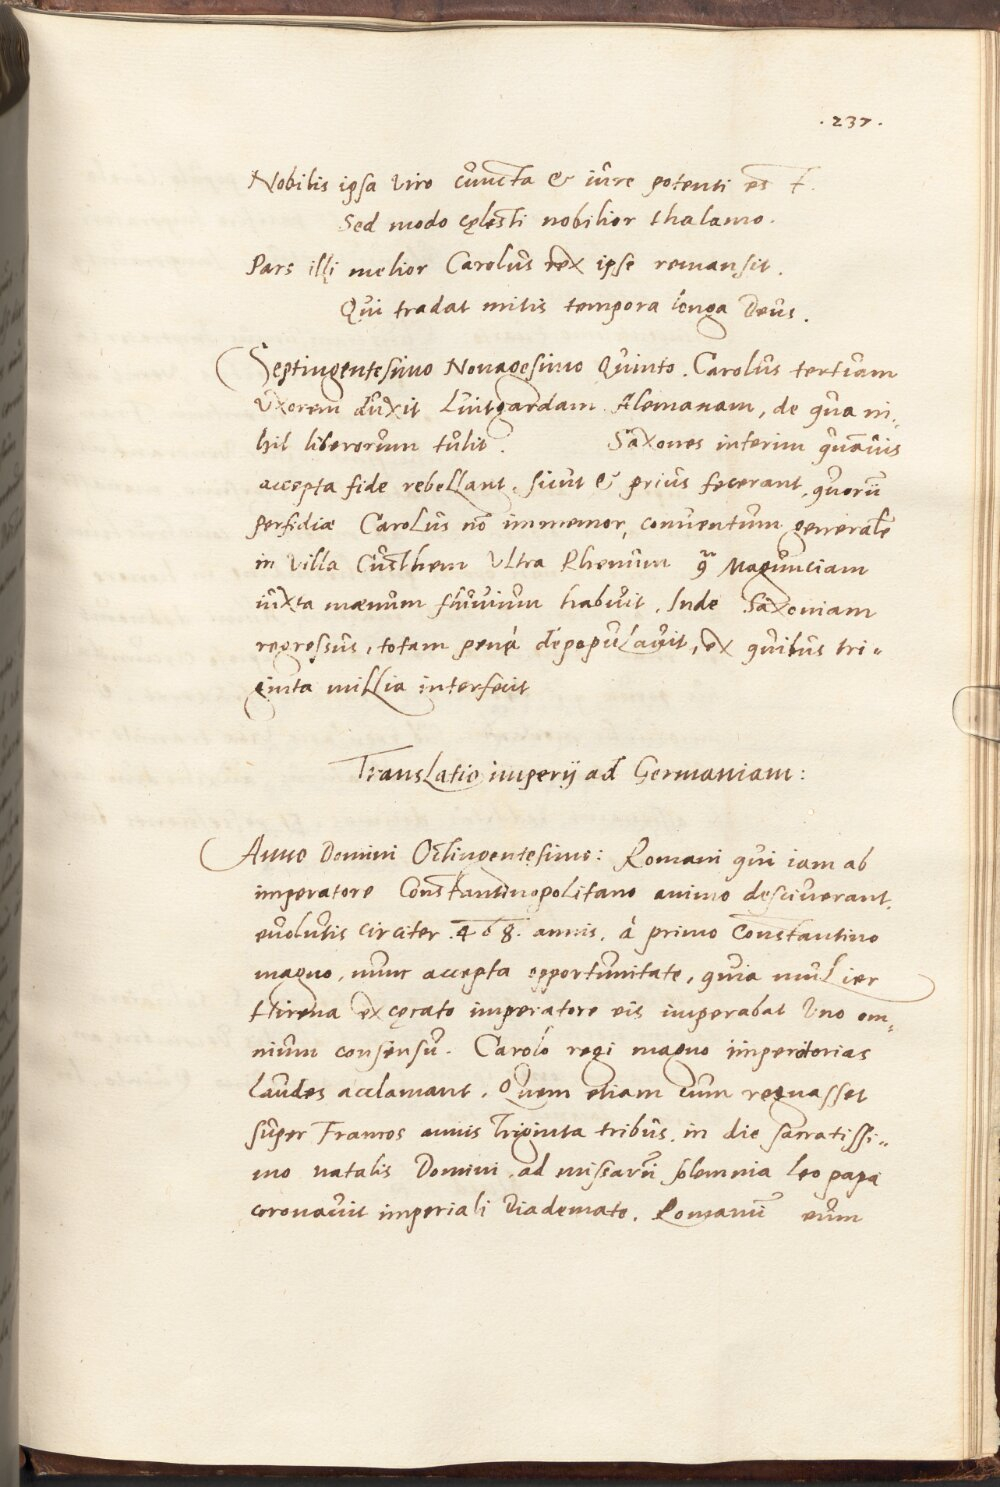 .237.
Nobilis ipsa viro cuncta & iure potenti est t.
Sed modo cęlesti nobilior thalamo.
Pars illi melior Carolus rex ipse remansit.
Qui tradat mitis tempora longa Deus.
Septingentesimo Nonagesimo Quinto. Carolus tertiam
Uxorem duxit Luitgardam Alemanam, de qua ni„
hil liberorum tulit. Saxones interim quãuis
accepta fide rebellant, sicut & prius fecerant, quorũ
perfidiæ Carolus nõ immemor, conuentum generalẽ
in villa Custhem ultra Rhenum Magunciam
iuxta mænum fluuium habuit. Inde Saxoniam
regressus, totam penè depopulauit, ex quibus tri„
ginta millia interfecit
Translatio imperij ad Germaniam:
Anno Domini Octingentesimo: Romani qui iam ab
imperatore Constantinopolitano animo desciuerant,
euolutis circiter .468. annis, à primo Constantino
magno, nunc accepta opportunitate, quia mulier
Hirena excęcato imperatore eis imperabat uno om„
nium consensu. Carolo regi magno imperatorias
laudes acclamant. Quem etiam cum regnasset
super Francos annis Triginta tribus, in die sacratissi„
mo natalis Domini, ad missarũ solemnia Leo papa
coronauit imperiali Diademate. Romanũ eum